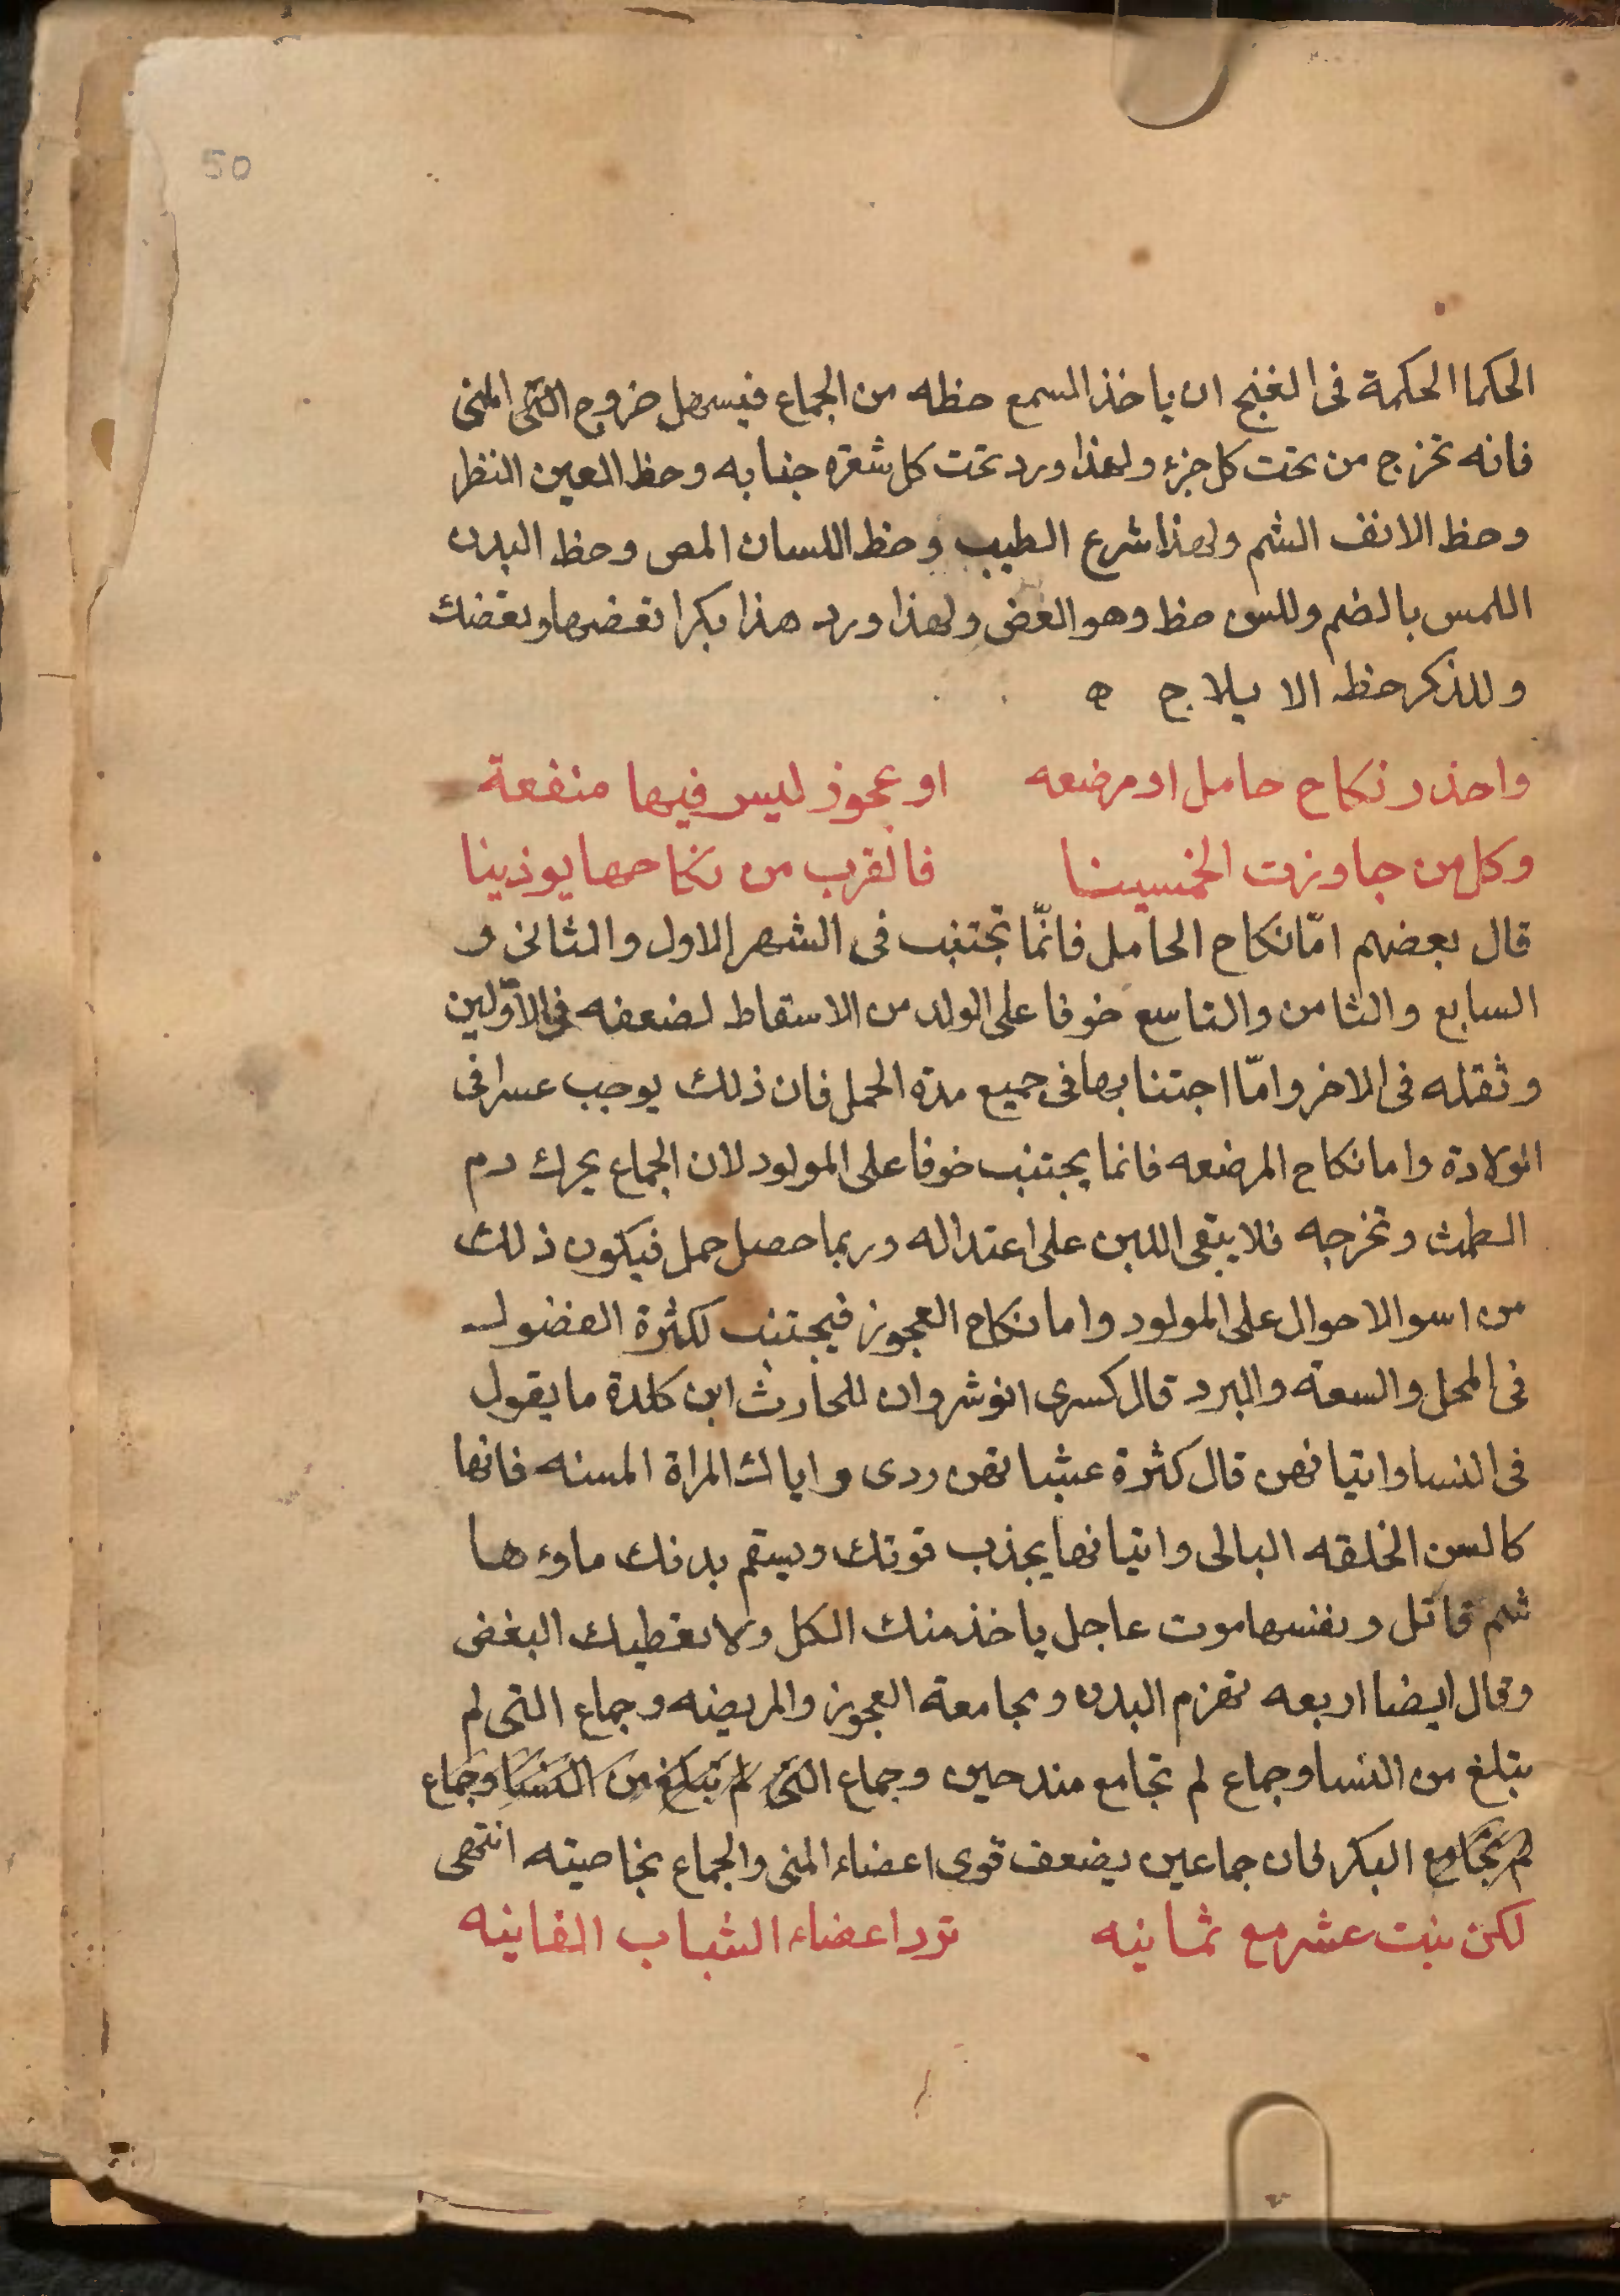 50
الحكما الحكمة فى الغنج ان ياخذ السمع حظه من الجماع فيسهل خروج المنى
فانه تخرج من تحت كل جزء ولهذا ورد تحت كل شعره جنابه وحظ العين النظر
وحظ الانف الشم ولهذا شرع الطيب وحظ اللسان المص وحظ البدن
اللمس بالضم وللسن حظ وهو العض ولهذا ورد هذا بكرا تعضها وتعضك
وللذكر حظه الا يلاج ه
واحذر نكاح حامل او مرضعه او عجوز ليس فيها منفعة
وكل من جاوزت الخمسينا فالقرب من نكاحها يوذينا
قال بعضهم امّا نكاح الحامل فانّما تجتنب فى الشهر الاول والثانى و
السابع والثامن والتاسع خوفا على الولد من الاسقاط لضعفه فى الاوّلين
وثقله فى الاخر وامّا اجتنابها فى جميع مدة الحمل فان ذلك يوجب عسرا فى
الولادة واما نكاح المرضعه فانما يجتنب خوفا على المولود لان الجماع يحرك دم
الطمث وتخرجه فلا يبقى اللبن على اعتداله وربما حصل حمل فيكون ذلك
من اسوا الاحوال على المولود واما نكاح العجوز فيجتنب لكثرة الفضول
فى المحل والسعة والبرد قال كسرى انوشروان للحارث ابن كلدة ما يقول
فى النسا واتيانهن قال كثرة غشيانهن ردى واياك المراة المسنه فانها
كالسن الخلقه البالى واتيانها يجذب قوتك ويسقم بدنك ماوءها
سم قاتل ونفسها موت عاجل ياخذ منك الكل ولا تعطيك البغض
وقال ايضا اربعه تهزم البدن ومجامعة العجوز والمريضه وجماع التى لم
تبلغ من النسا وجماع لم تجامع منذ حين وجماع التى لم تبلغ من النسا وجماع
لم تجامع البكر فان جماعين يضعف قوى اعضاء المنى والجماع بخاصيته انتهى
لكن بنت عشر مع ثمانيه ترد اعضاء الشباب الفانيه